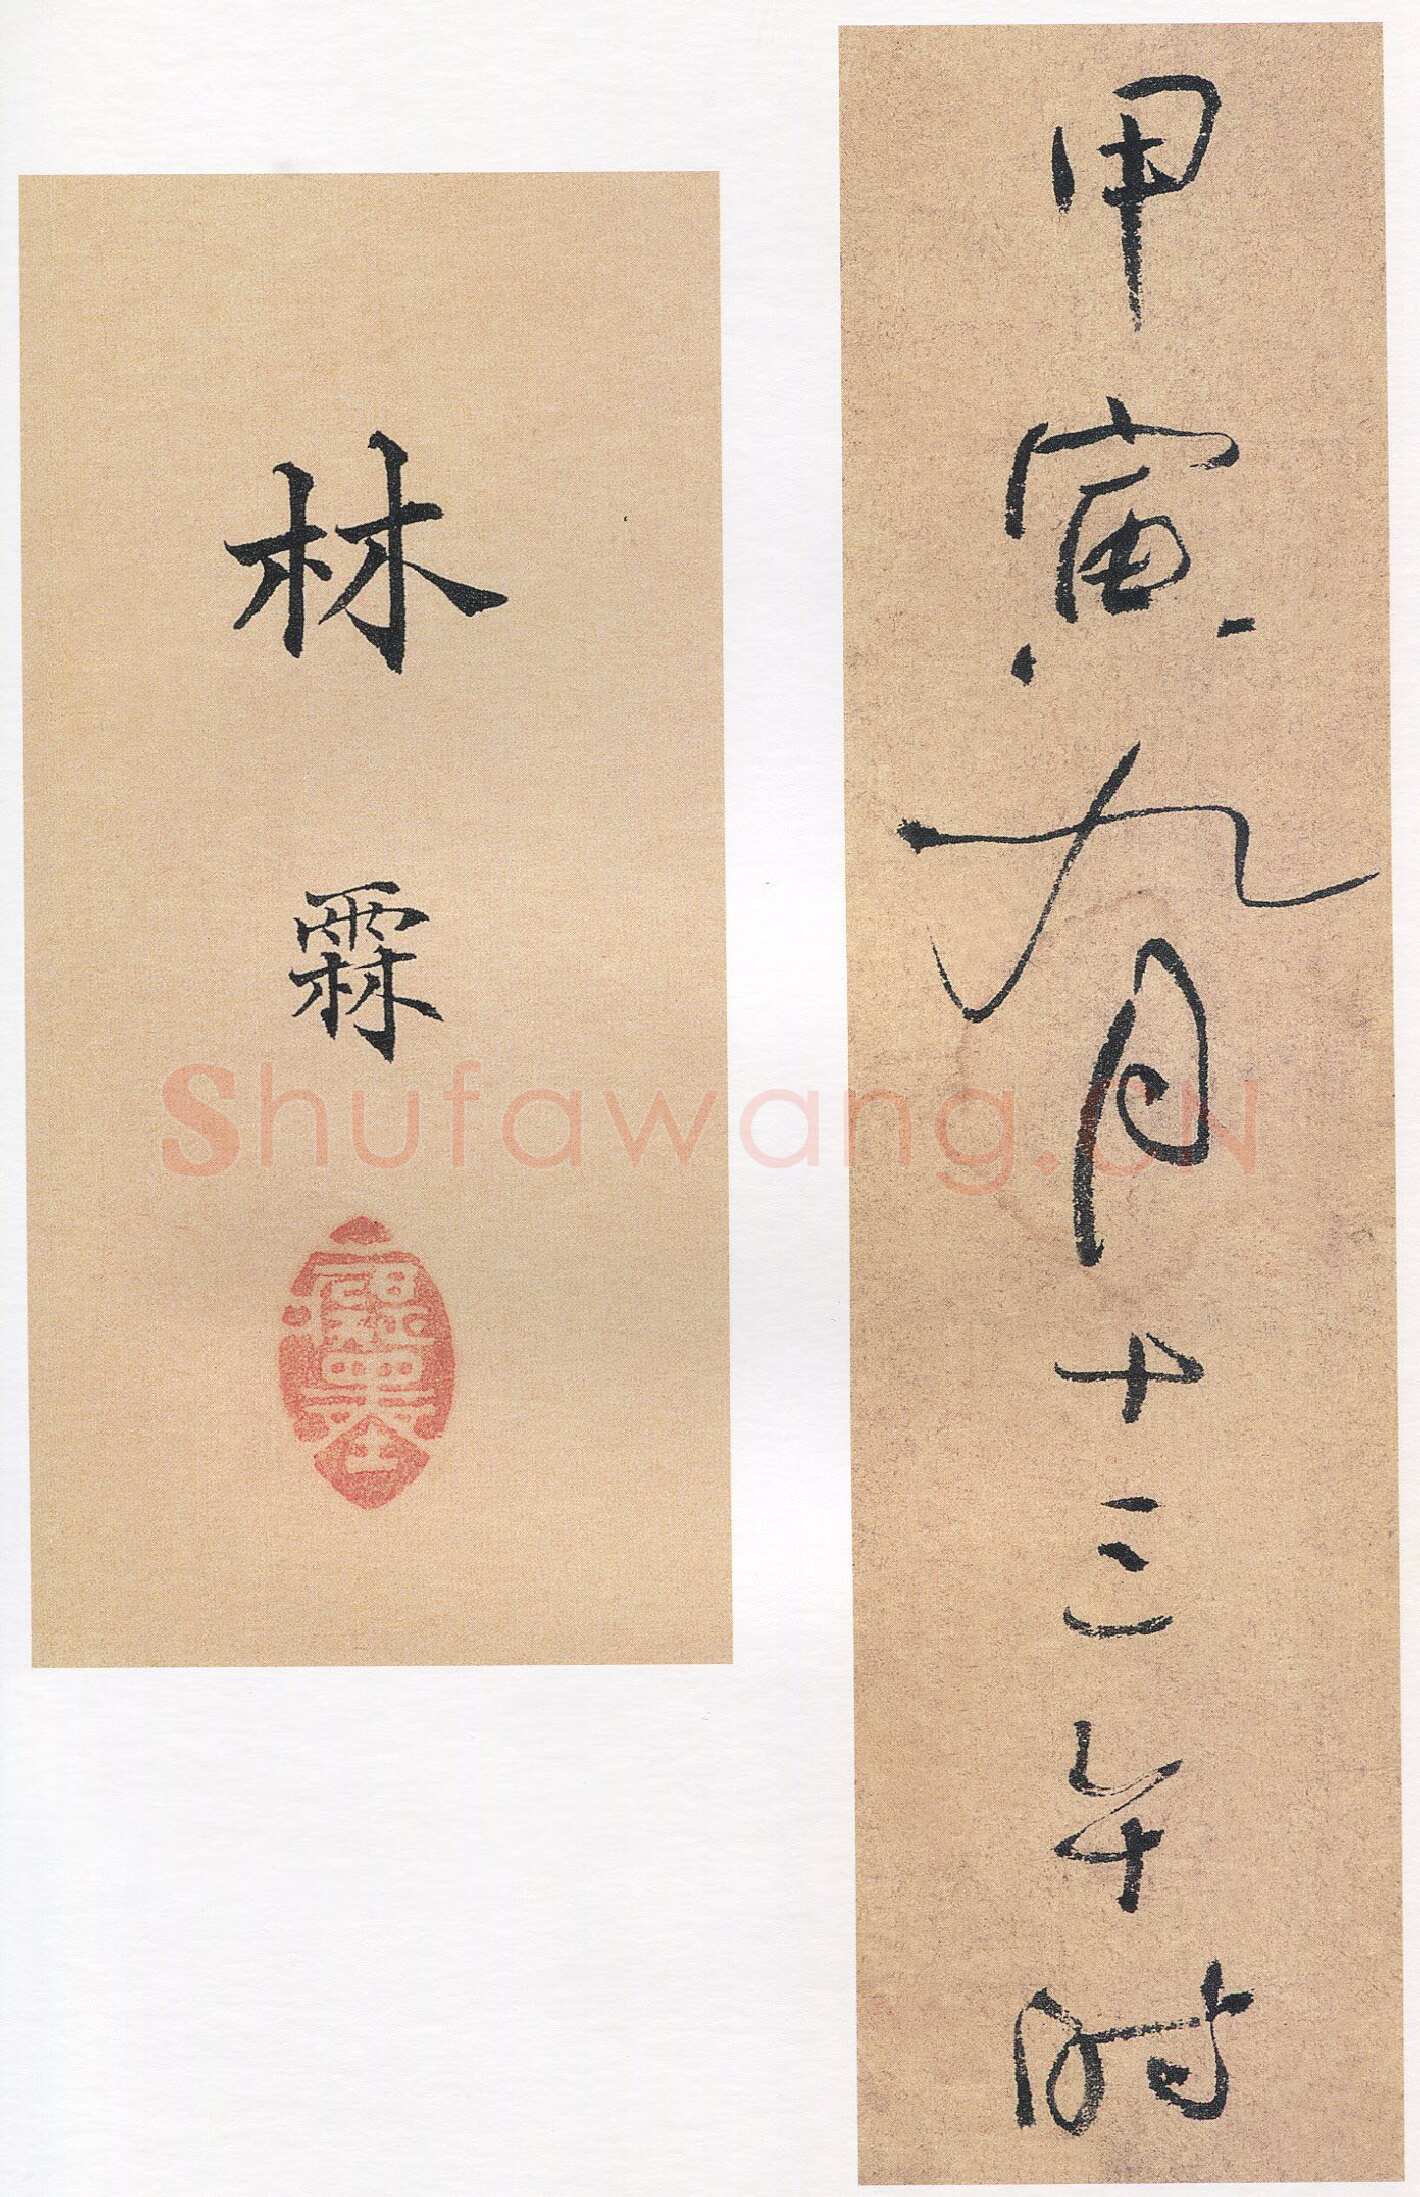 甲寅九月十三午时
林霖
Shufawang.CN